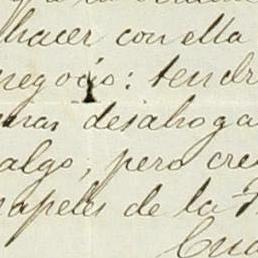 hacer con ella
negocio: tendr
mas desahoga
algo, pero cre
apeles de la